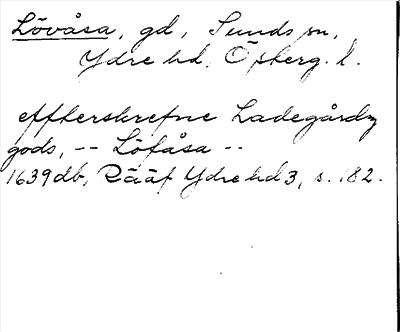 Lövåsa, gd, Sunds sn,
Ydre hd, Österg. l.
effterskrefne Ladegårdz
gods, -- Löfåsa --
1639 db, Rääf Ydre hd 3, s. 182.